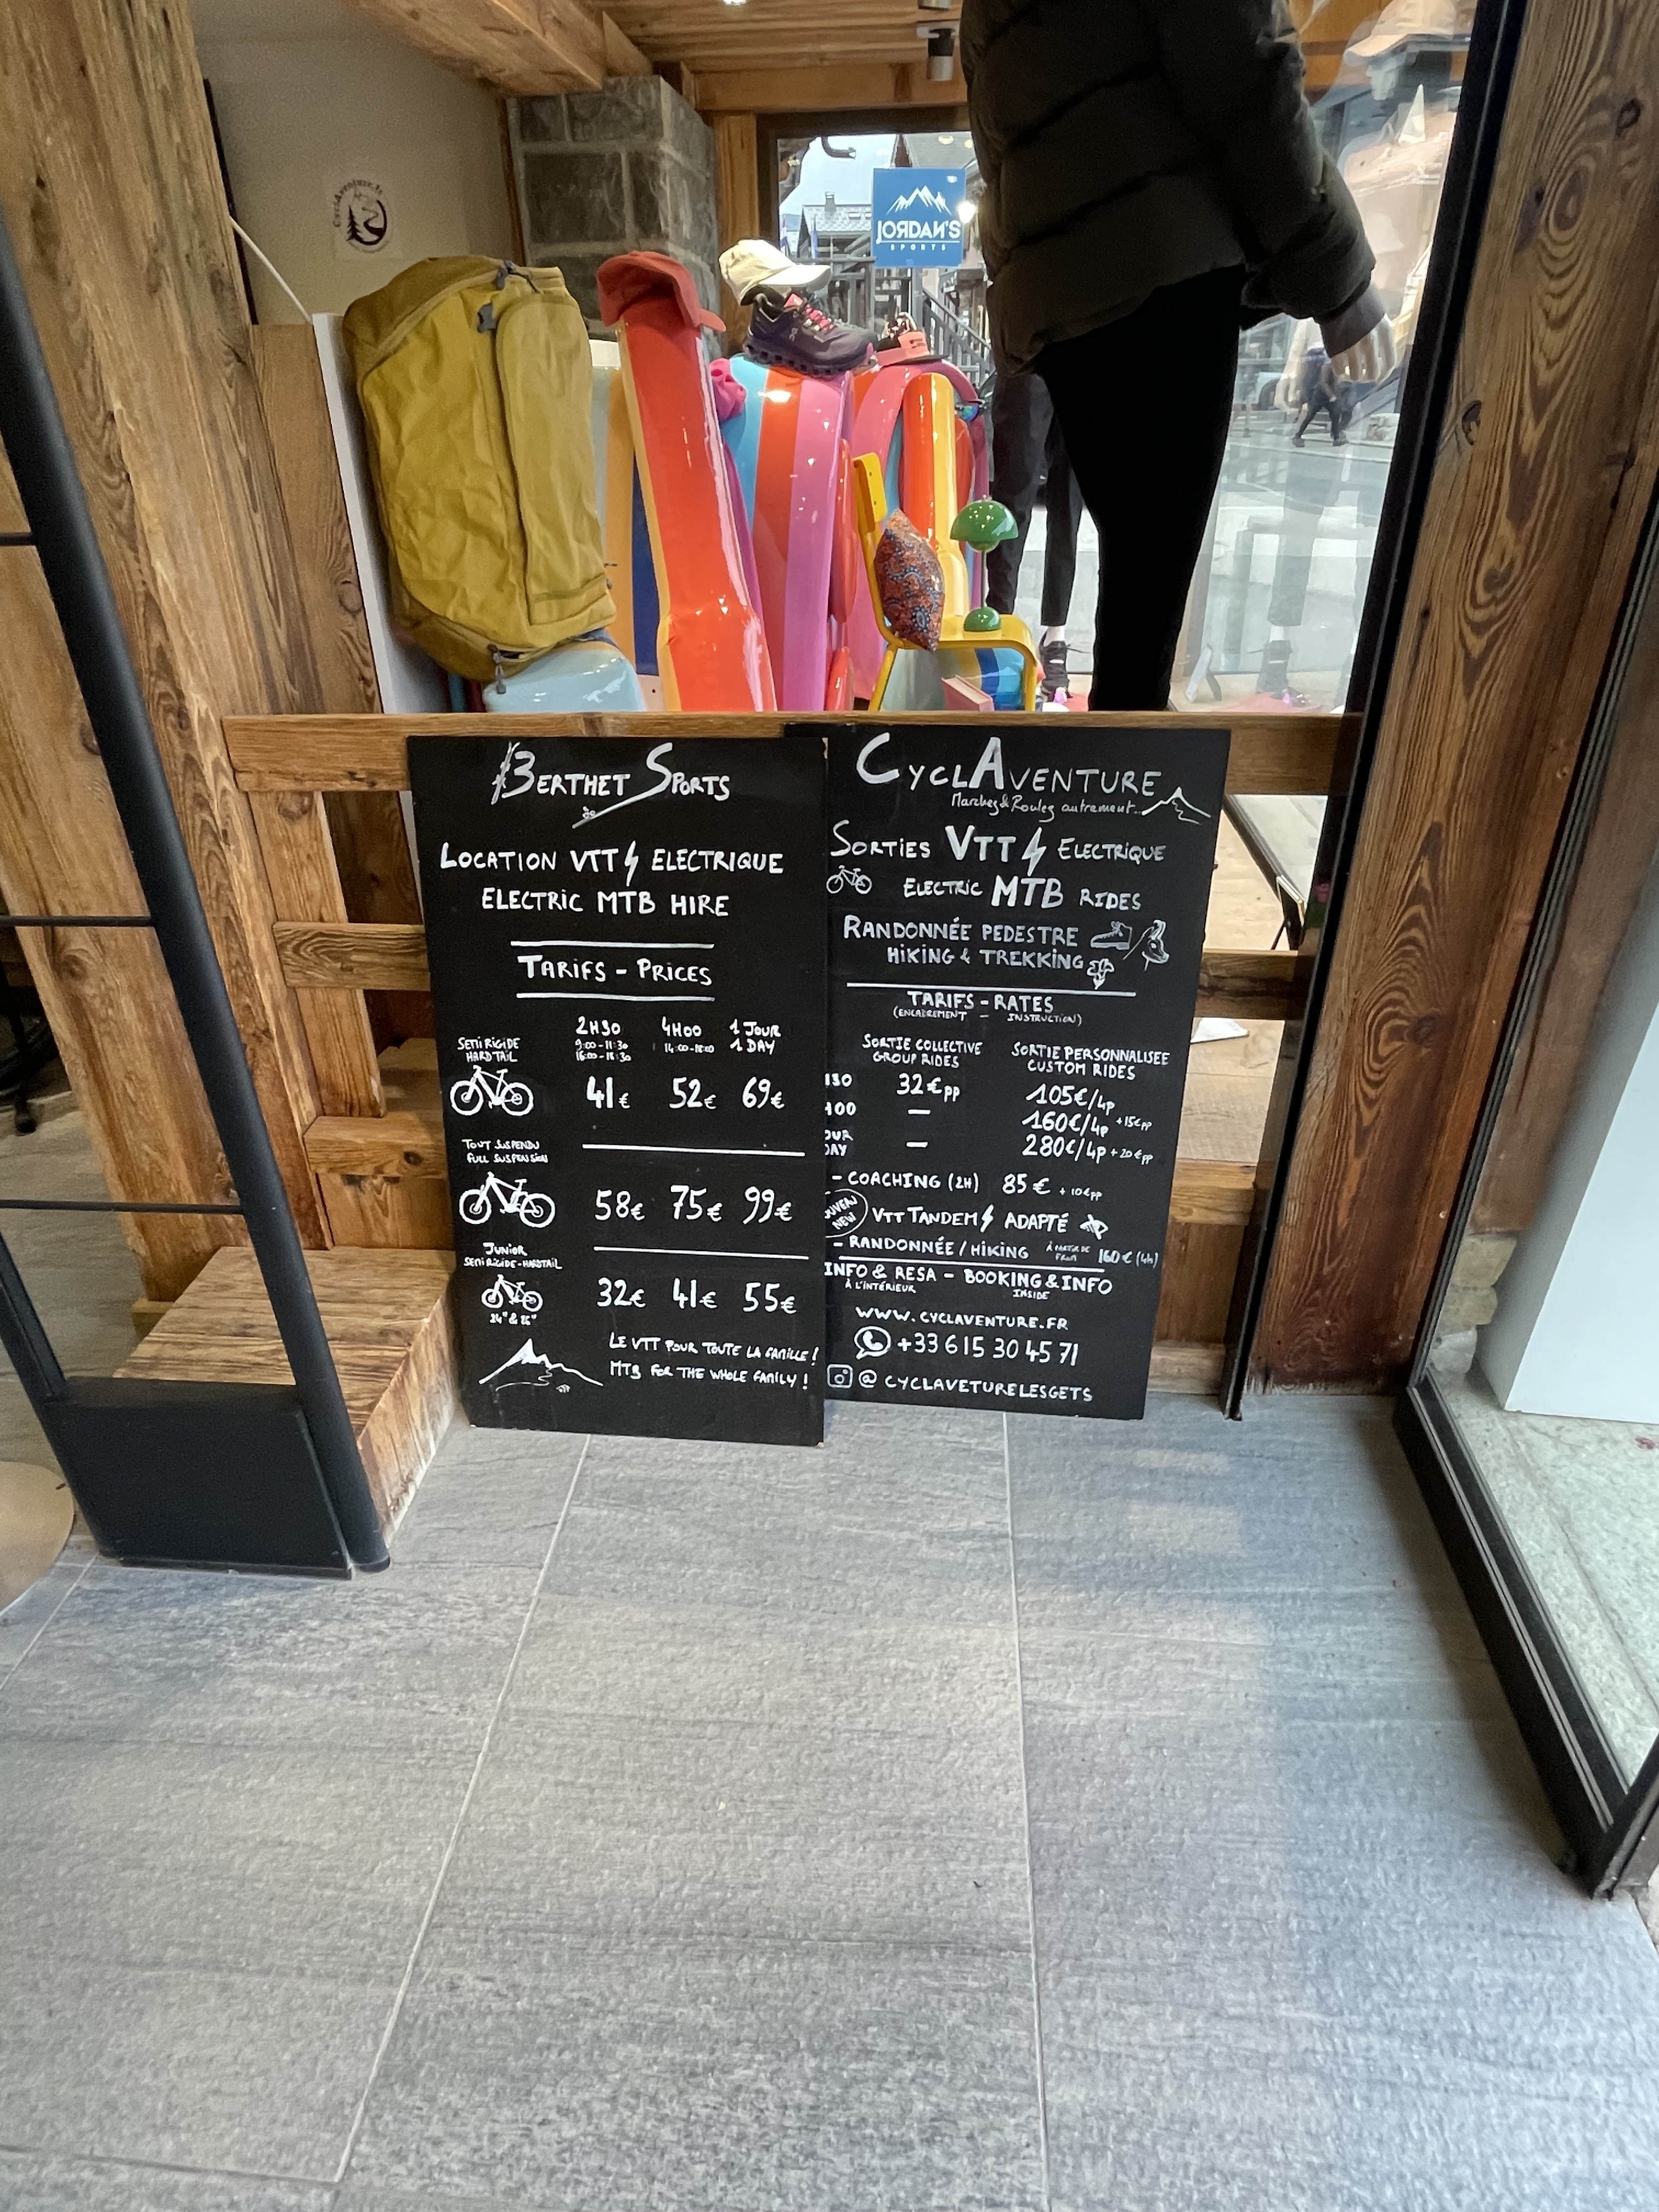 CyclAventure.fr
JORDAN'S
SPORTS
BERTHET SPORTS
LOCATION VTT ELECTRIQUE
ELECTRIC MTB HIRE
TARIFS - PRICES
2H30 4H00 1 JOUR
9:00-11:30 14:00-18:00 1 DAY
16:00-18:30
SEMI RIGIDE
HARD TAIL
41€ 52€ 69€
TOUT SUSPENDU
FULL SUSPENSION
58€ 75€ 99€
JUNIOR
SEMI RIGIDE-HARDTAIL
32€ 41€ 55€
24" & 26"
LE VTT POUR TOUTE LA FAMILLE !
MTB FOR THE WHOLE FAMILY !
CYCLAVENTURE
Marchez & Roulez autrement...
SORTIES VTT ELECTRIQUE
ELECTRIC MTB RIDES
RANDONNÉE PEDESTRE
HIKING & TREKKING
TARIFS - RATES
(ENCADREMENT - INSTRUCTION)
SORTIE COLLECTIVE SORTIE PERSONNALISEE
GROUP RIDES CUSTOM RIDES
H30 32€pp 105€/4p
H00 — 160€/4p +15€pp
OUR — 280€/4p +20€pp
DAY
- COACHING (2H) 85€ +10€pp
OUVEAU
NEW
VTT TANDEM ADAPTÉ
- RANDONNÉE / HIKING À PARTIR DE 160€ (4h)
FROM
INFO & RESA - BOOKING & INFO
À L'INTÉRIEUR INSIDE
WWW.CYCLAVENTURE.FR
+33 6 15 30 45 71
@ CYCLAVETURELESGETS